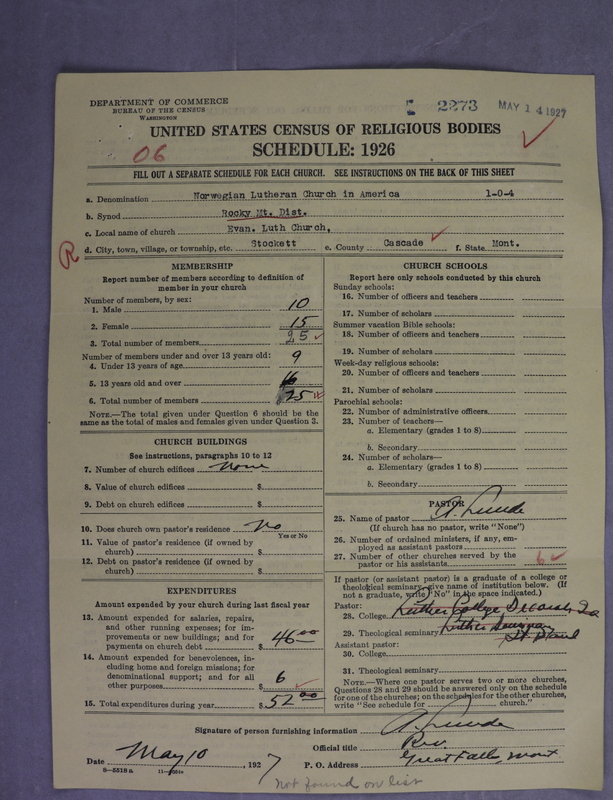 DEPARTMENT OF COMMERCE
BUREAU OF THE CENSUS
WASHINGTON
2273 MAY 14 1927
UNITED STATES CENSUS OF RELIGIOUS BODIES
06
SCHEDULE: 1926
FILL OUT A SEPARATE SCHEDULE FOR EACH CHURCH. SEE INSTRUCTIONS ON THE BACK OF THIS SHEET
a. Denomination Norwegian Lutheran Church in America 1-0-4
b. Synod Rocky Mt. Dist.
c. Local name of church Evan. Luth Church,
R d. City, town, village, or township, etc. Stockett e. County Cascade f. State Mont.
MEMBERSHIP
Report number of members according to definition of
member in your church
Number of members, by sex:
1. Male 10
2. Female 15
3. Total number of members 25
Number of members under and over 13 years old:
4. Under 13 years of age 9
5. 13 years old and over 16
6. Total number of members 25
NOTE.—The total given under Question 6 should be
same as the total of males and females given under Question 3.
CHURCH BUILDINGS
See instructions, paragraphs 10 to 12
7. Number of church edifices none
8. Value of church edifices $
9. Debt on church edifices $
10. Does church own pastor's residence No
Yes or No
11. Value of pastor's residence (if owned by
church) $
12. Debt on pastor's residence (if owned by
church) $
EXPENDITURES
Amount expended by your church during last fiscal year
13. Amount expended for salaries, repairs,
and other running expenses; for im-
provements or new buildings; and for
payments on church debt $ 46 00
14. Amount expended for benevolences, in-
cluding home and foreign missions; for
denominational support; and for all
other purposes $ 6
15. Total expenditures during year $ 52 00
CHURCH SCHOOLS
Report here only schools conducted by this church
Sunday schools:
16. Number of officers and teachers
17. Number of scholars
Summer vacation Bible schools:
18. Number of officers and teachers
19. Number of scholars
Week-day religious schools:
20. Number of officers and teachers
21. Number of scholars
Parochial schools:
22. Number of administrative officers
23. Number of teachers—
a. Elementary (grades 1 to 8)
b. Secondary
24. Number of scholars—
a. Elementary (grades 1 to 8)
b. Secondary
PASTOR
25. Name of pastor
(If church has no pastor, write "None")
26. Number of ordained ministers, if any, em-
ployed as assistant pastors
27. Number of other churches served by the
pastor or his assistants 6
If pastor (or assistant pastor) is a graduate of a college or
theological seminary, give name of institution below. (If
not a graduate, write "No" in the space indicated.)
Pastor:
28. College Luther College Decorah Ia
29. Theological seminary Luther Seminary
St Paul
Assistant pastor:
30. College
31. Theological seminary
NOTE.—Where one pastor serves two or more churches,
Questions 28 and 29 should be answered only on the schedule
for one of the churches; on the schedules for the other churches,
write "See schedule for church."
Signature of person furnishing information
Official title Rev.
Date May 10, 1927 P. O. Address Great Falls, Mont
8-5518a
not found on list